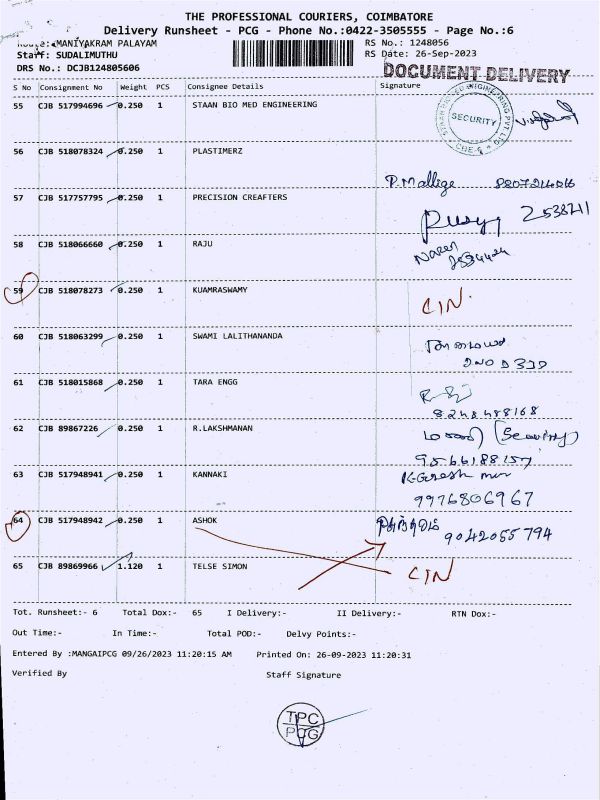 THE PROFESSIONAL COURIERS, COIMBATORE
Delivery Runsheet - PCG - Phone No.:0422-3505555 - Page No.:6
Route: MANIYAKRAM PALAYAM RS No.: 1248056
Staff: SUDALIMUTHU RS Date: 26-Sep-2023
DRS No.: DCJB124805606 DOCUMENT DELIVERY
S No Consignment No Weight PCS Consignee Details Signature
55 CJB 517994696 0.250 1 STAAN BIO MED ENGINEERING
SECURITY
56 CJB 518078324 0.250 1 PLASTIMERZ
57 CJB 517757795 0.250 1 PRECISION CREAFTERS
2538211
58 CJB 518066660 0.250 1 RAJU
59 CJB 518078273 0.250 1 KUAMRASWAMY
CIN.
60 CJB 518063299 0.250 1 SWAMI LALITHANANDA
61 CJB 518015868 0.250 1 TARA ENGG
8248488168
62 CJB 89867226 0.250 1 R.LAKSHMANAN
(Security)
9566188157
63 CJB 517948941 0.250 1 KANNAKI
9976806967
64 CJB 517948942 0.250 1 ASHOK
9042055794
65 CJB 89869966 1.120 1 TELSE SIMON
CIN
Tot. Runsheet:- 6 Total Dox:- 65 I Delivery:- II Delivery:- RTN Dox:-
Out Time:- In Time:- Total POD:- Delvy Points:-
Entered By :MANGAIPCG 09/26/2023 11:20:15 AM Printed On: 26-09-2023 11:20:31
Verified By Staff Signature
TPC
PCG